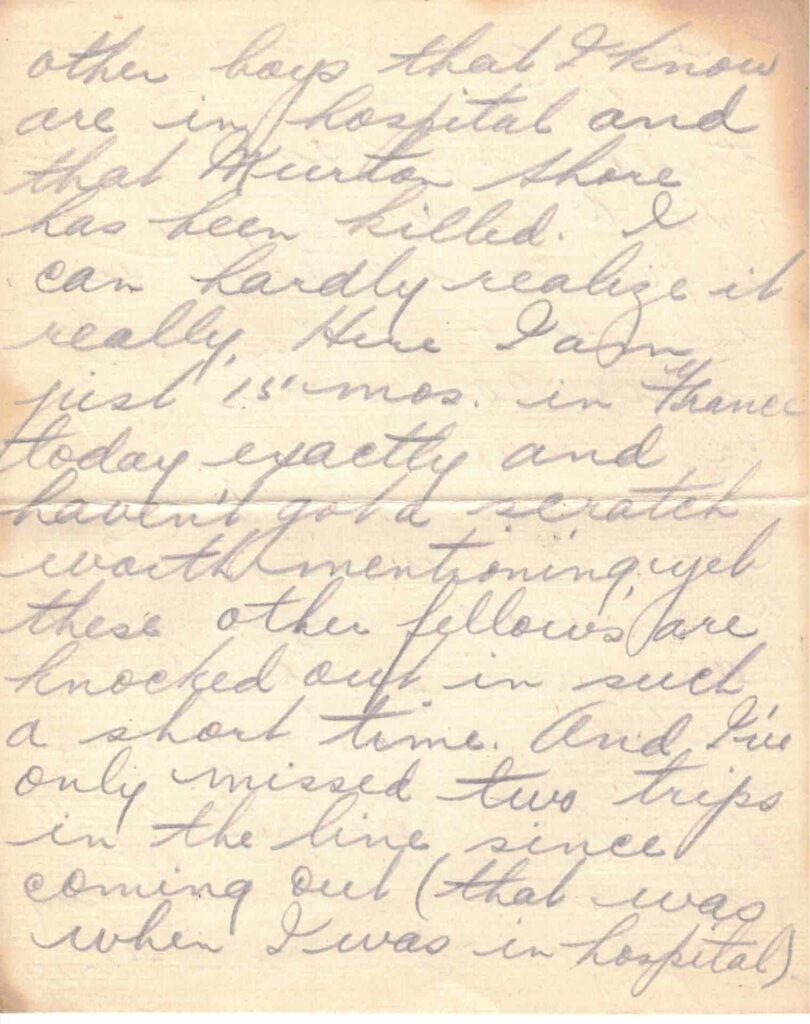 other boys that I know
are in hospital and
that Murton Shore
has been killed. I
can hardly realize it
really. Here I am
just 15 mos. in France
today exactly and
haven't got a scratch
worth mentioning, yet
these other fellows are
knocked out in such
a short time. And I've
only missed two trips
in the line since
coming out (that was
when I was in hospital)